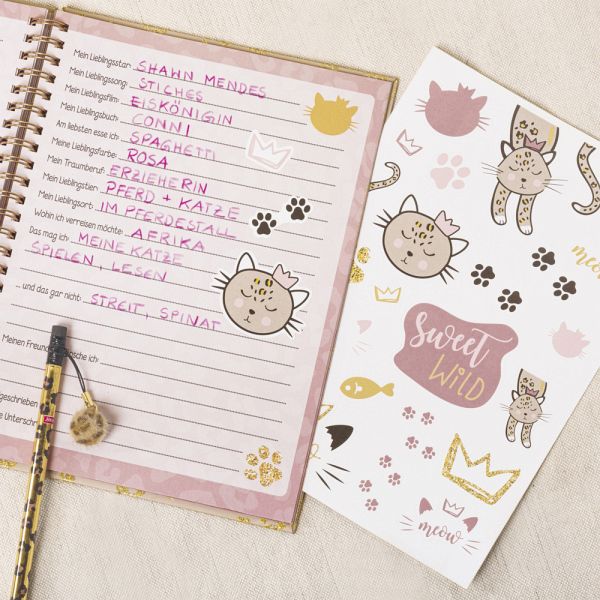 Mein Lieblingsstar: SHAWN MENDES
Mein Lieblingssong: STICHES
Mein Lieblingsfilm: EISKÖNIGIN
Mein Lieblingsbuch: CONNI
Am liebsten esse ich: SPAGHETTI
Meine Lieblingsfarbe: ROSA
Mein Traumberuf: ERZIEHERIN
Mein Lieblingstier: PFERD + KATZE
Mein Lieblingsort: IM PFERDESTALL
Wohin ich verreisen möchte: AFRIKA
Das mag ich: MEINE KATZE
SPIELEN, LESEN
... und das gar nicht: STREIT, SPINAT
Meinen Freund wünsche ich:
geschrieben
Unterschri
meow
Sweet
WiLD
meow